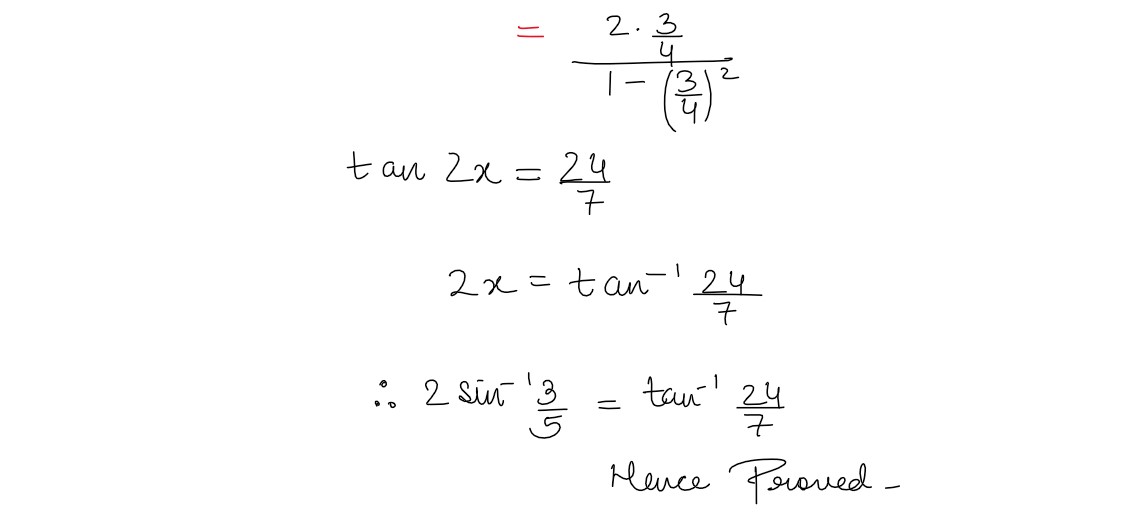 = (2 · 3/4) / (1 − (3/4)²)
tan 2x = 24/7
2x = tan⁻¹ 24/7
∴ 2 sin⁻¹ 3/5 = tan⁻¹ 24/7
Hence Proved -